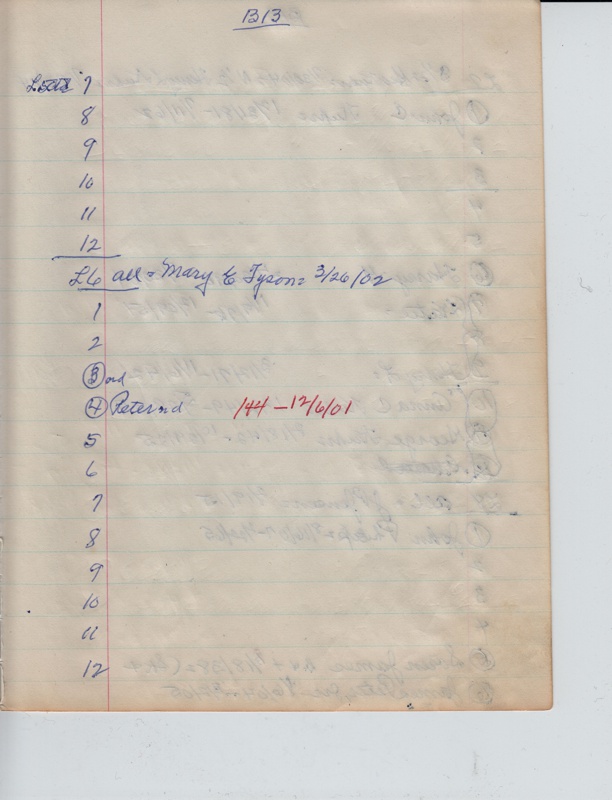 B13
7
8
9
10
11
12
L6 all = Mary E Tyson = 3/26/02
1
2
3 ond
4 Peter nd 144 - 12/6/01
5
6
7
8
9
10
11
12